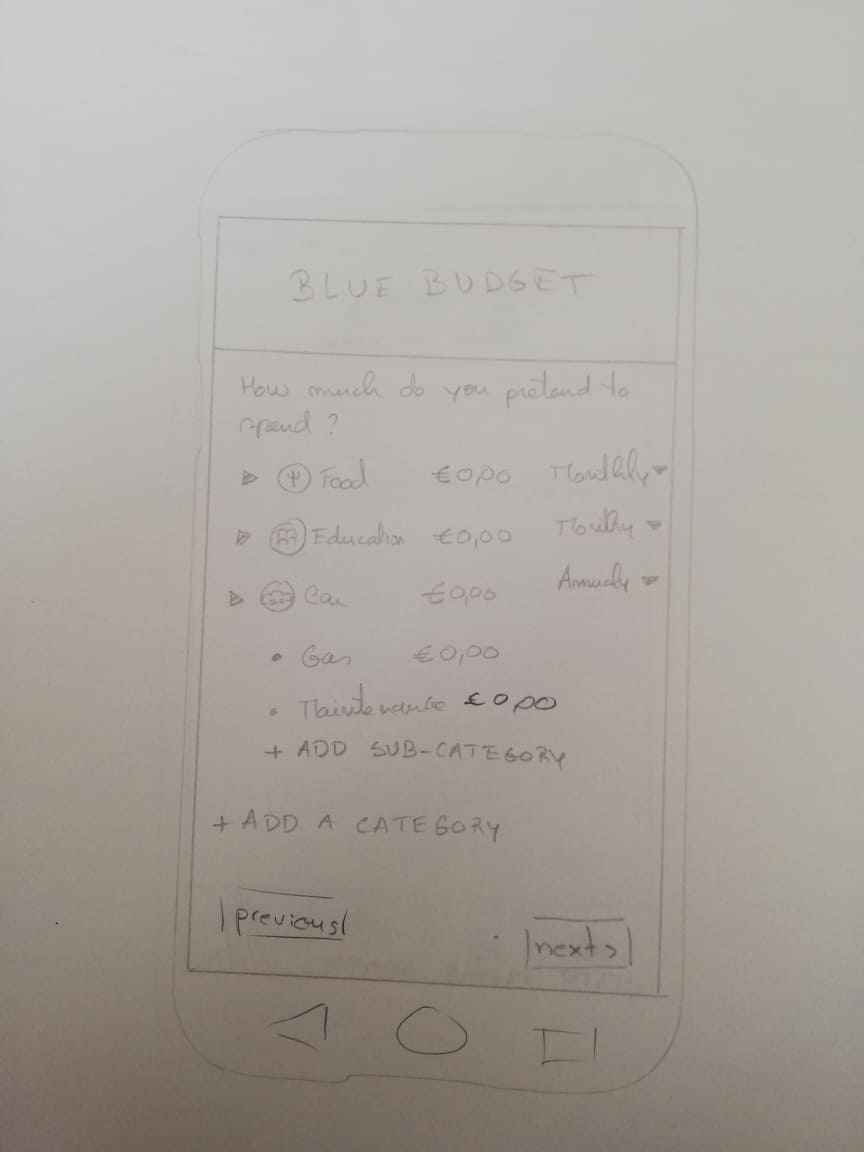 BLUE BUDGET
How much do you pretend to
spend ?
Food €0,00 Monthly
Education €0,00 Monthly
Car €0,00 Annualy
• Gas €0,00
• Maintenance €0,00
+ ADD SUB-CATEGORY
+ ADD A CATEGORY
previous
next >